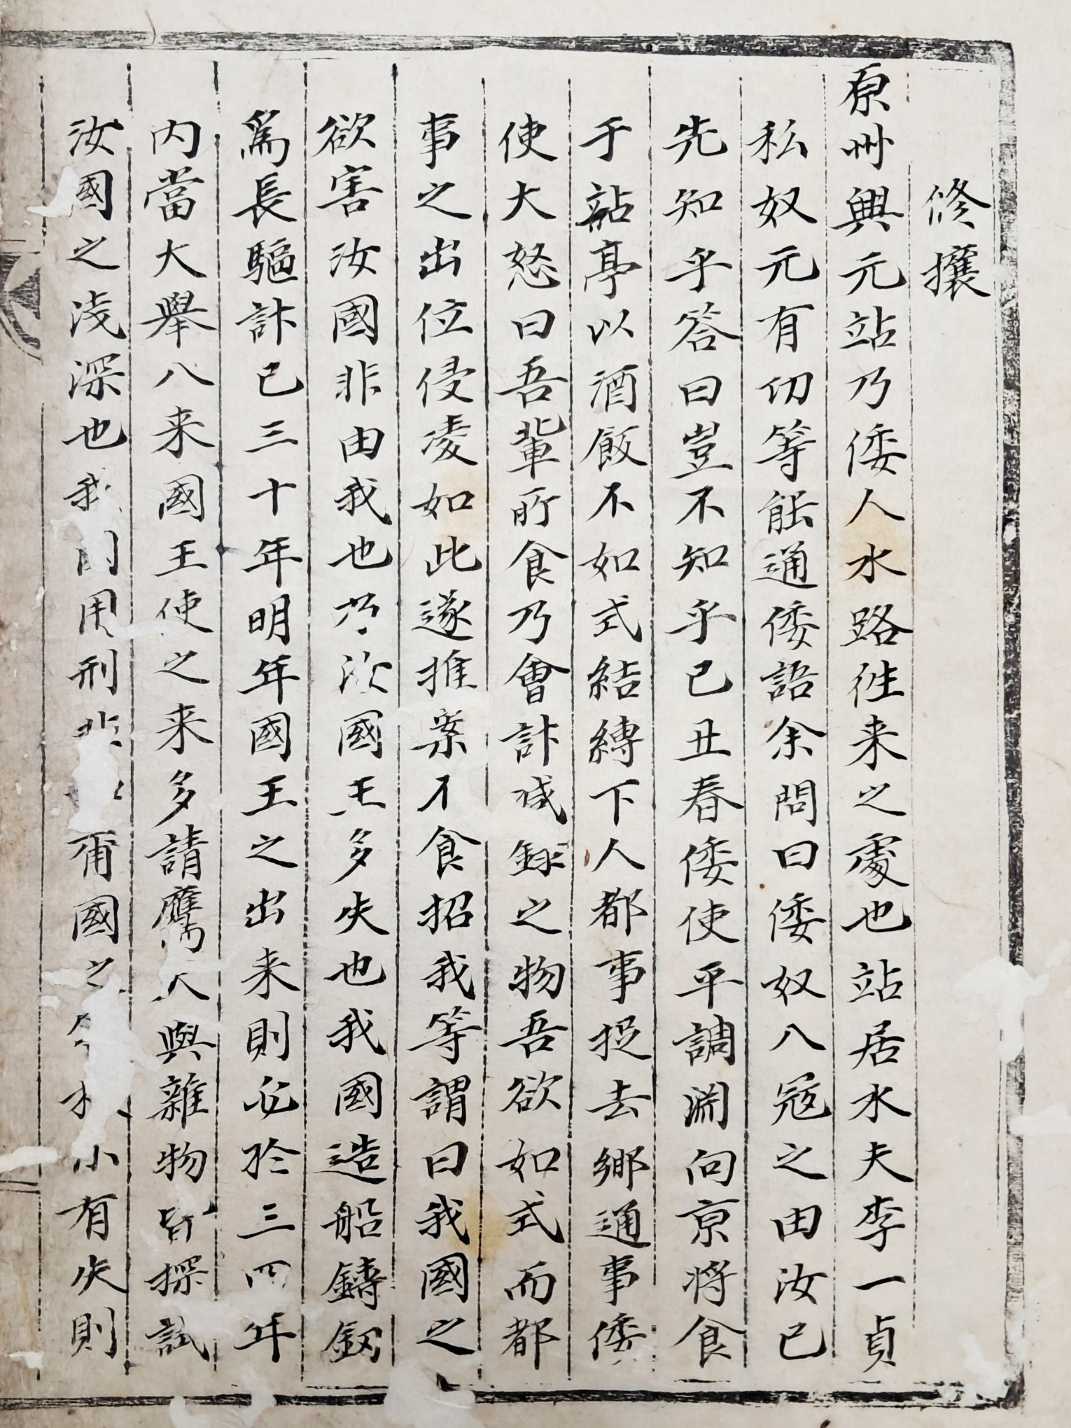 修攘
原州興元站乃倭人水路徃来之處也站居水夫李一貞
私奴元有切等能通倭語余問曰倭奴入冦之由汝已
先知乎答曰豈不知乎己丑春倭使平調渊向京将食
于站亭以酒飯不如式結縛下人都事捉去鄉通事倭
使大怒曰吾輩所食乃會計减録之物吾欲如式而都
事之出位侵凌如此遂推案不食招我等謂曰我國之
欲害汝國非由我也乃汝國王多失也我國造船鑄釼
為長驅計已三十年明年國王之出来則必扵三四年
内當大舉入来國王使之来多請鷹犬與雜物皆探試
汝國之浅深也我用刑非爾國之小有失則